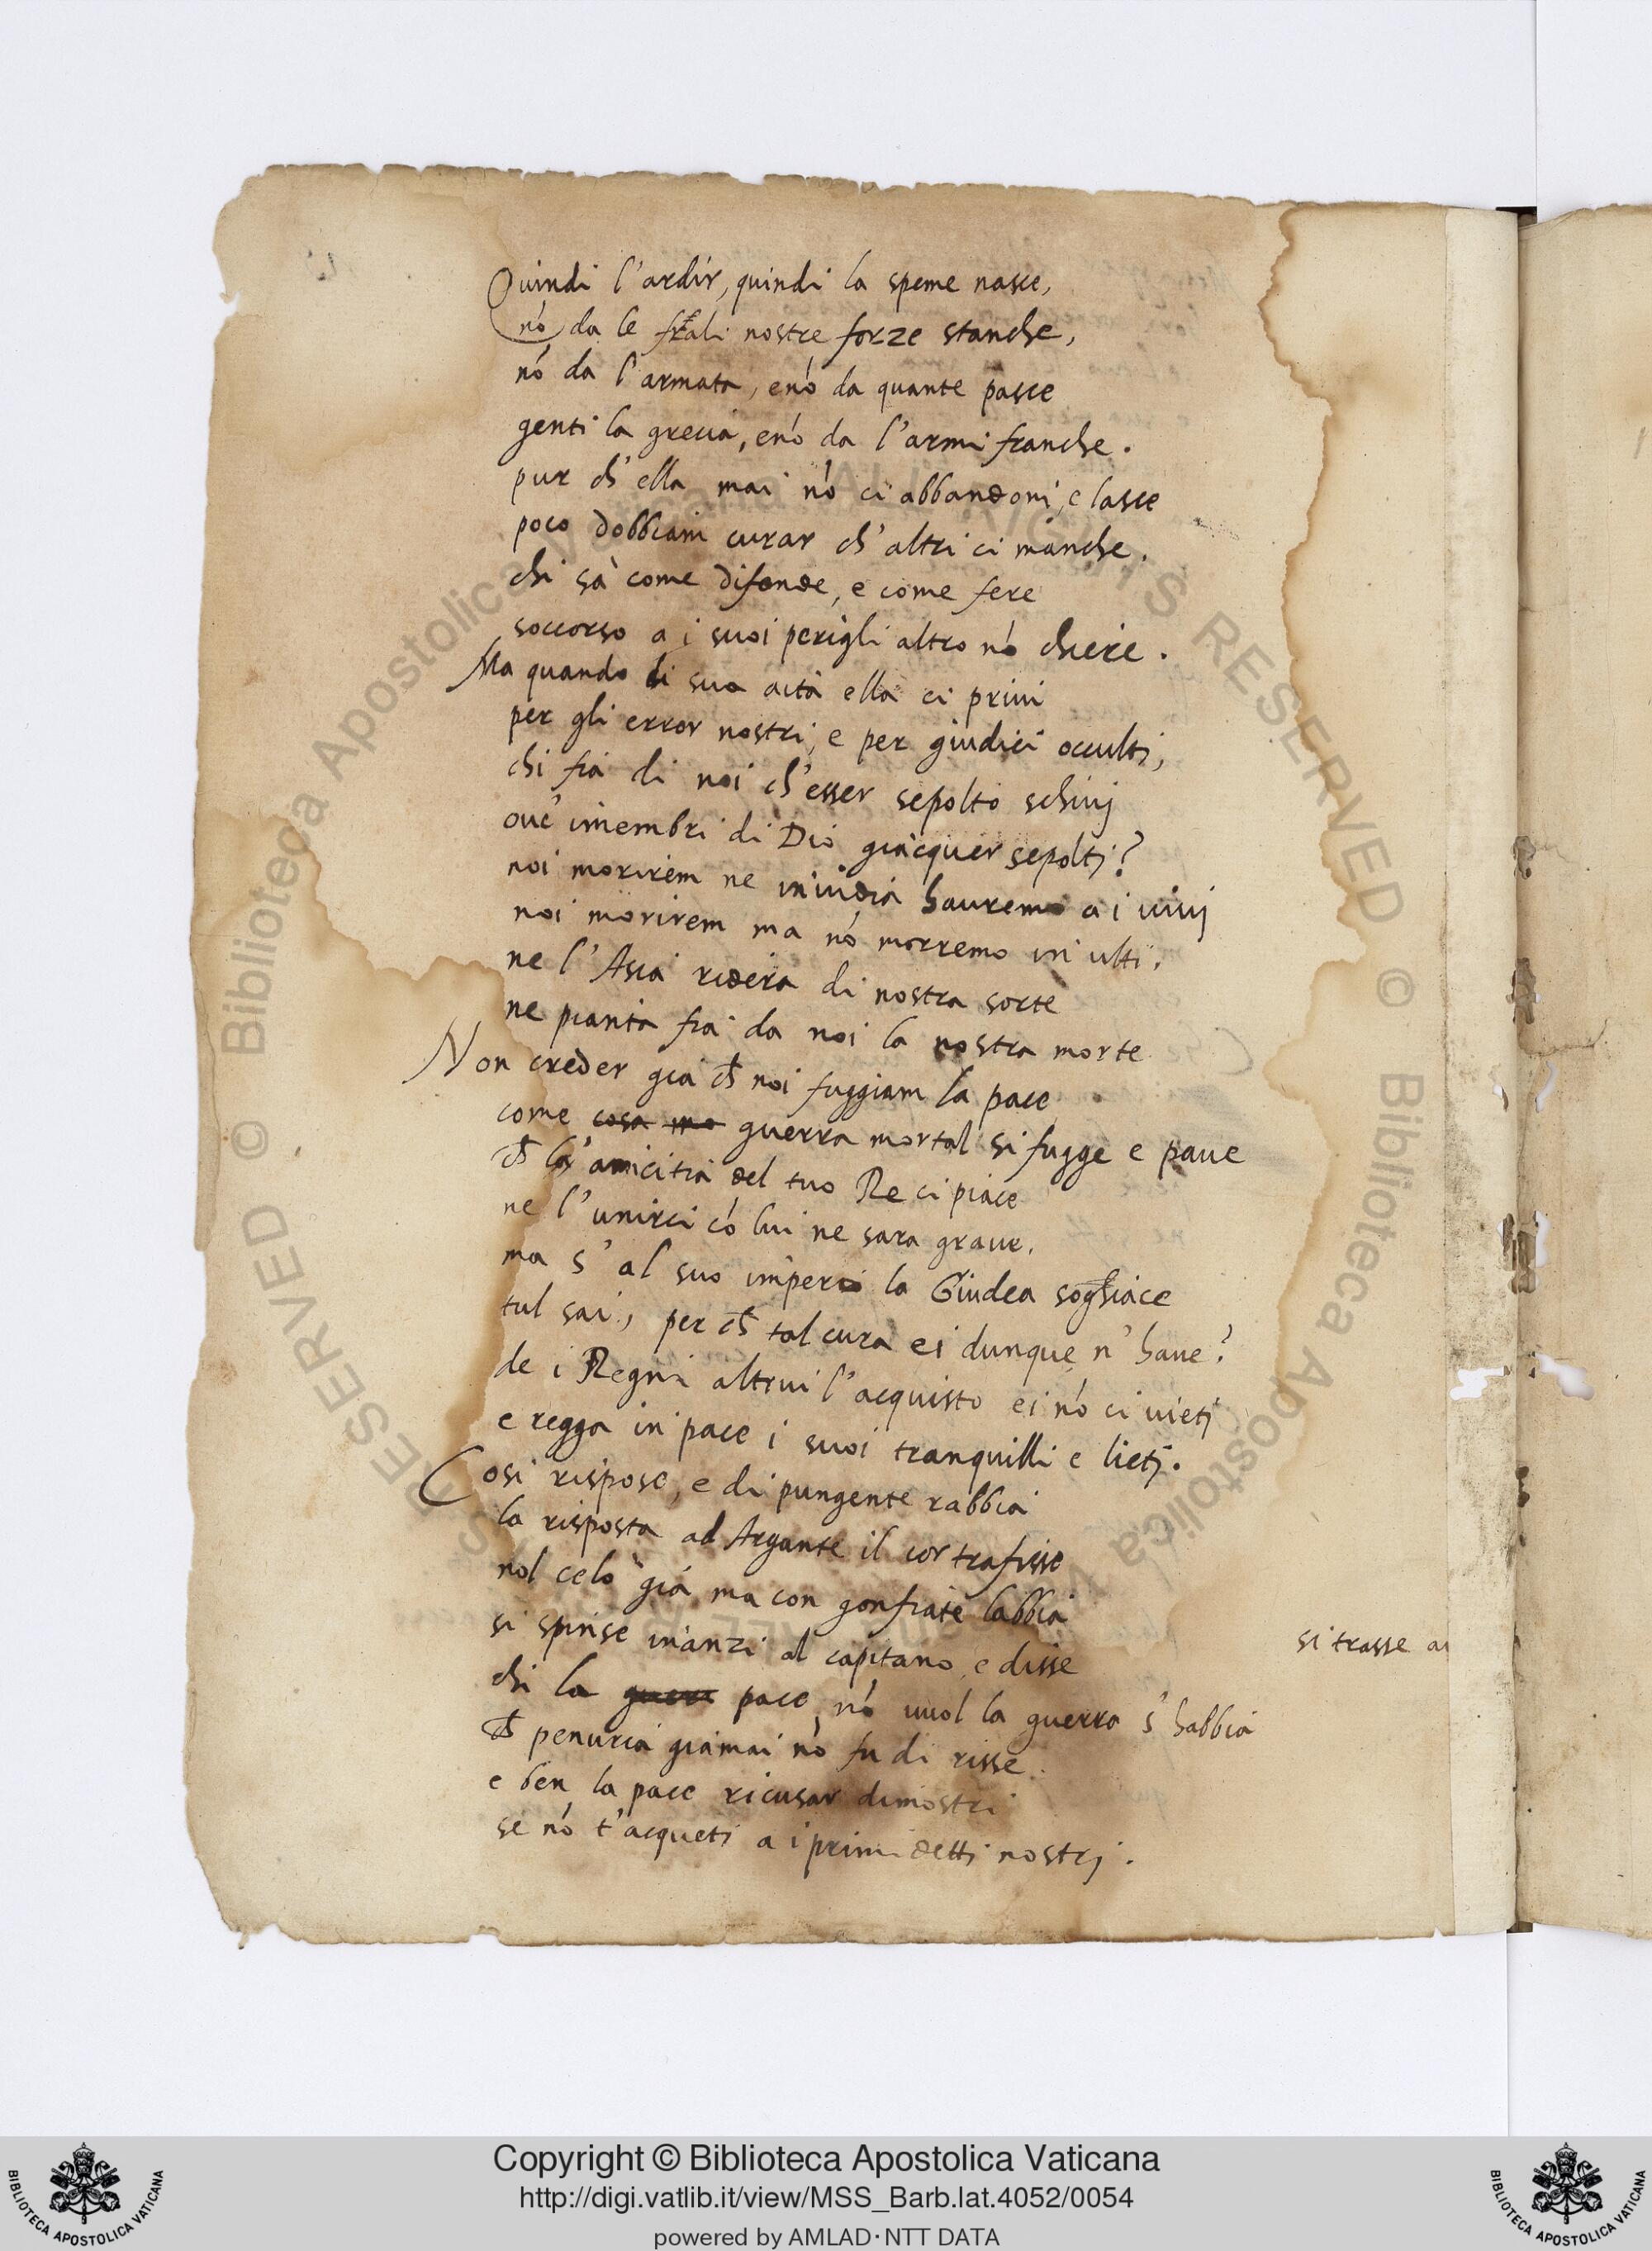 Quindi l'ardir, quindi la speme nasce,
nó da le frali nostre forze stanche,
nó da l'armata, e nó da quante pasce
genti la grecia, e nó da l'armi franche.
pur ch'ella mai nó ci abbandoni, e lasce
poco dobbiam curar ch'altri ci manche.
chi sà come difende, e come fere
soccorso a i suoi perigli altro nó chere.
Ma quando di sua aita ella ci privi
per gli error nostri, e per giudici occulti,
chi fia di noi ch'esser sepolto schivj
ove i membri di Dio giacquer sepoltj?
noi morirem ne invidia havremo a i vivj
noi morirem ma nó morremo in ulti.
ne l'Asia riderà di nostra sorte
ne pianta fia da noi la nostra morte
Non creder gia ch noi fuggiam la pace
come cosa mo guerra mortal si fugge e pave
ch l'amicitia del tuo Re ci piace
ne l'unirci có lui ne sara grave.
ma s'al suo imperio la Giudea soghiace
tul sai, per ch tal cura ei dunque n'have?
de i Regni altrui l'acquisto ei nó ci vietj
e regga in pace i suoi tranquilli e lietj.
Cosi rispose, e di pungente rabbia
la risposta ad Argante il cor trafisse
nol celò già, ma con gonfiate labbia
si spinse inanzi al capitano, e disse
si trasse
chi la guerra pace nó vuol la guerra s'habbia
ch penuria giamai nó fu di risse.
e ben la pace ricusar dimostri
se nó t'acqueti a i primi detti nostrj.
Copyright © Biblioteca Apostolica Vaticana
http://digi.vatlib.it/view/MSS_Barb.lat.4052/0054
powered by AMLAD·NTT DATA
BIBLIOTECA APOSTOLICA VATICANA
BIBLIOTECA APOSTOLICA VATICANA